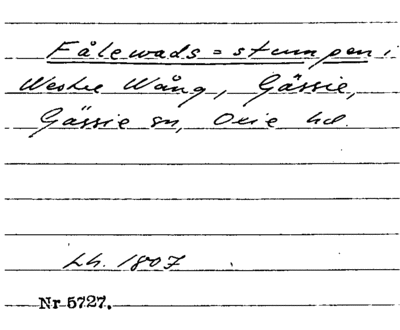 Fålewads=stumpen i
Westre Wång, Gässie,
Gässie sn, Oxie hd.
Lh. 1807
Nr 5727.